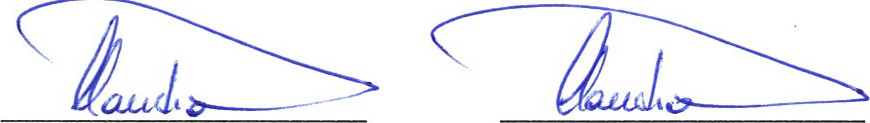 Claudia Claudia